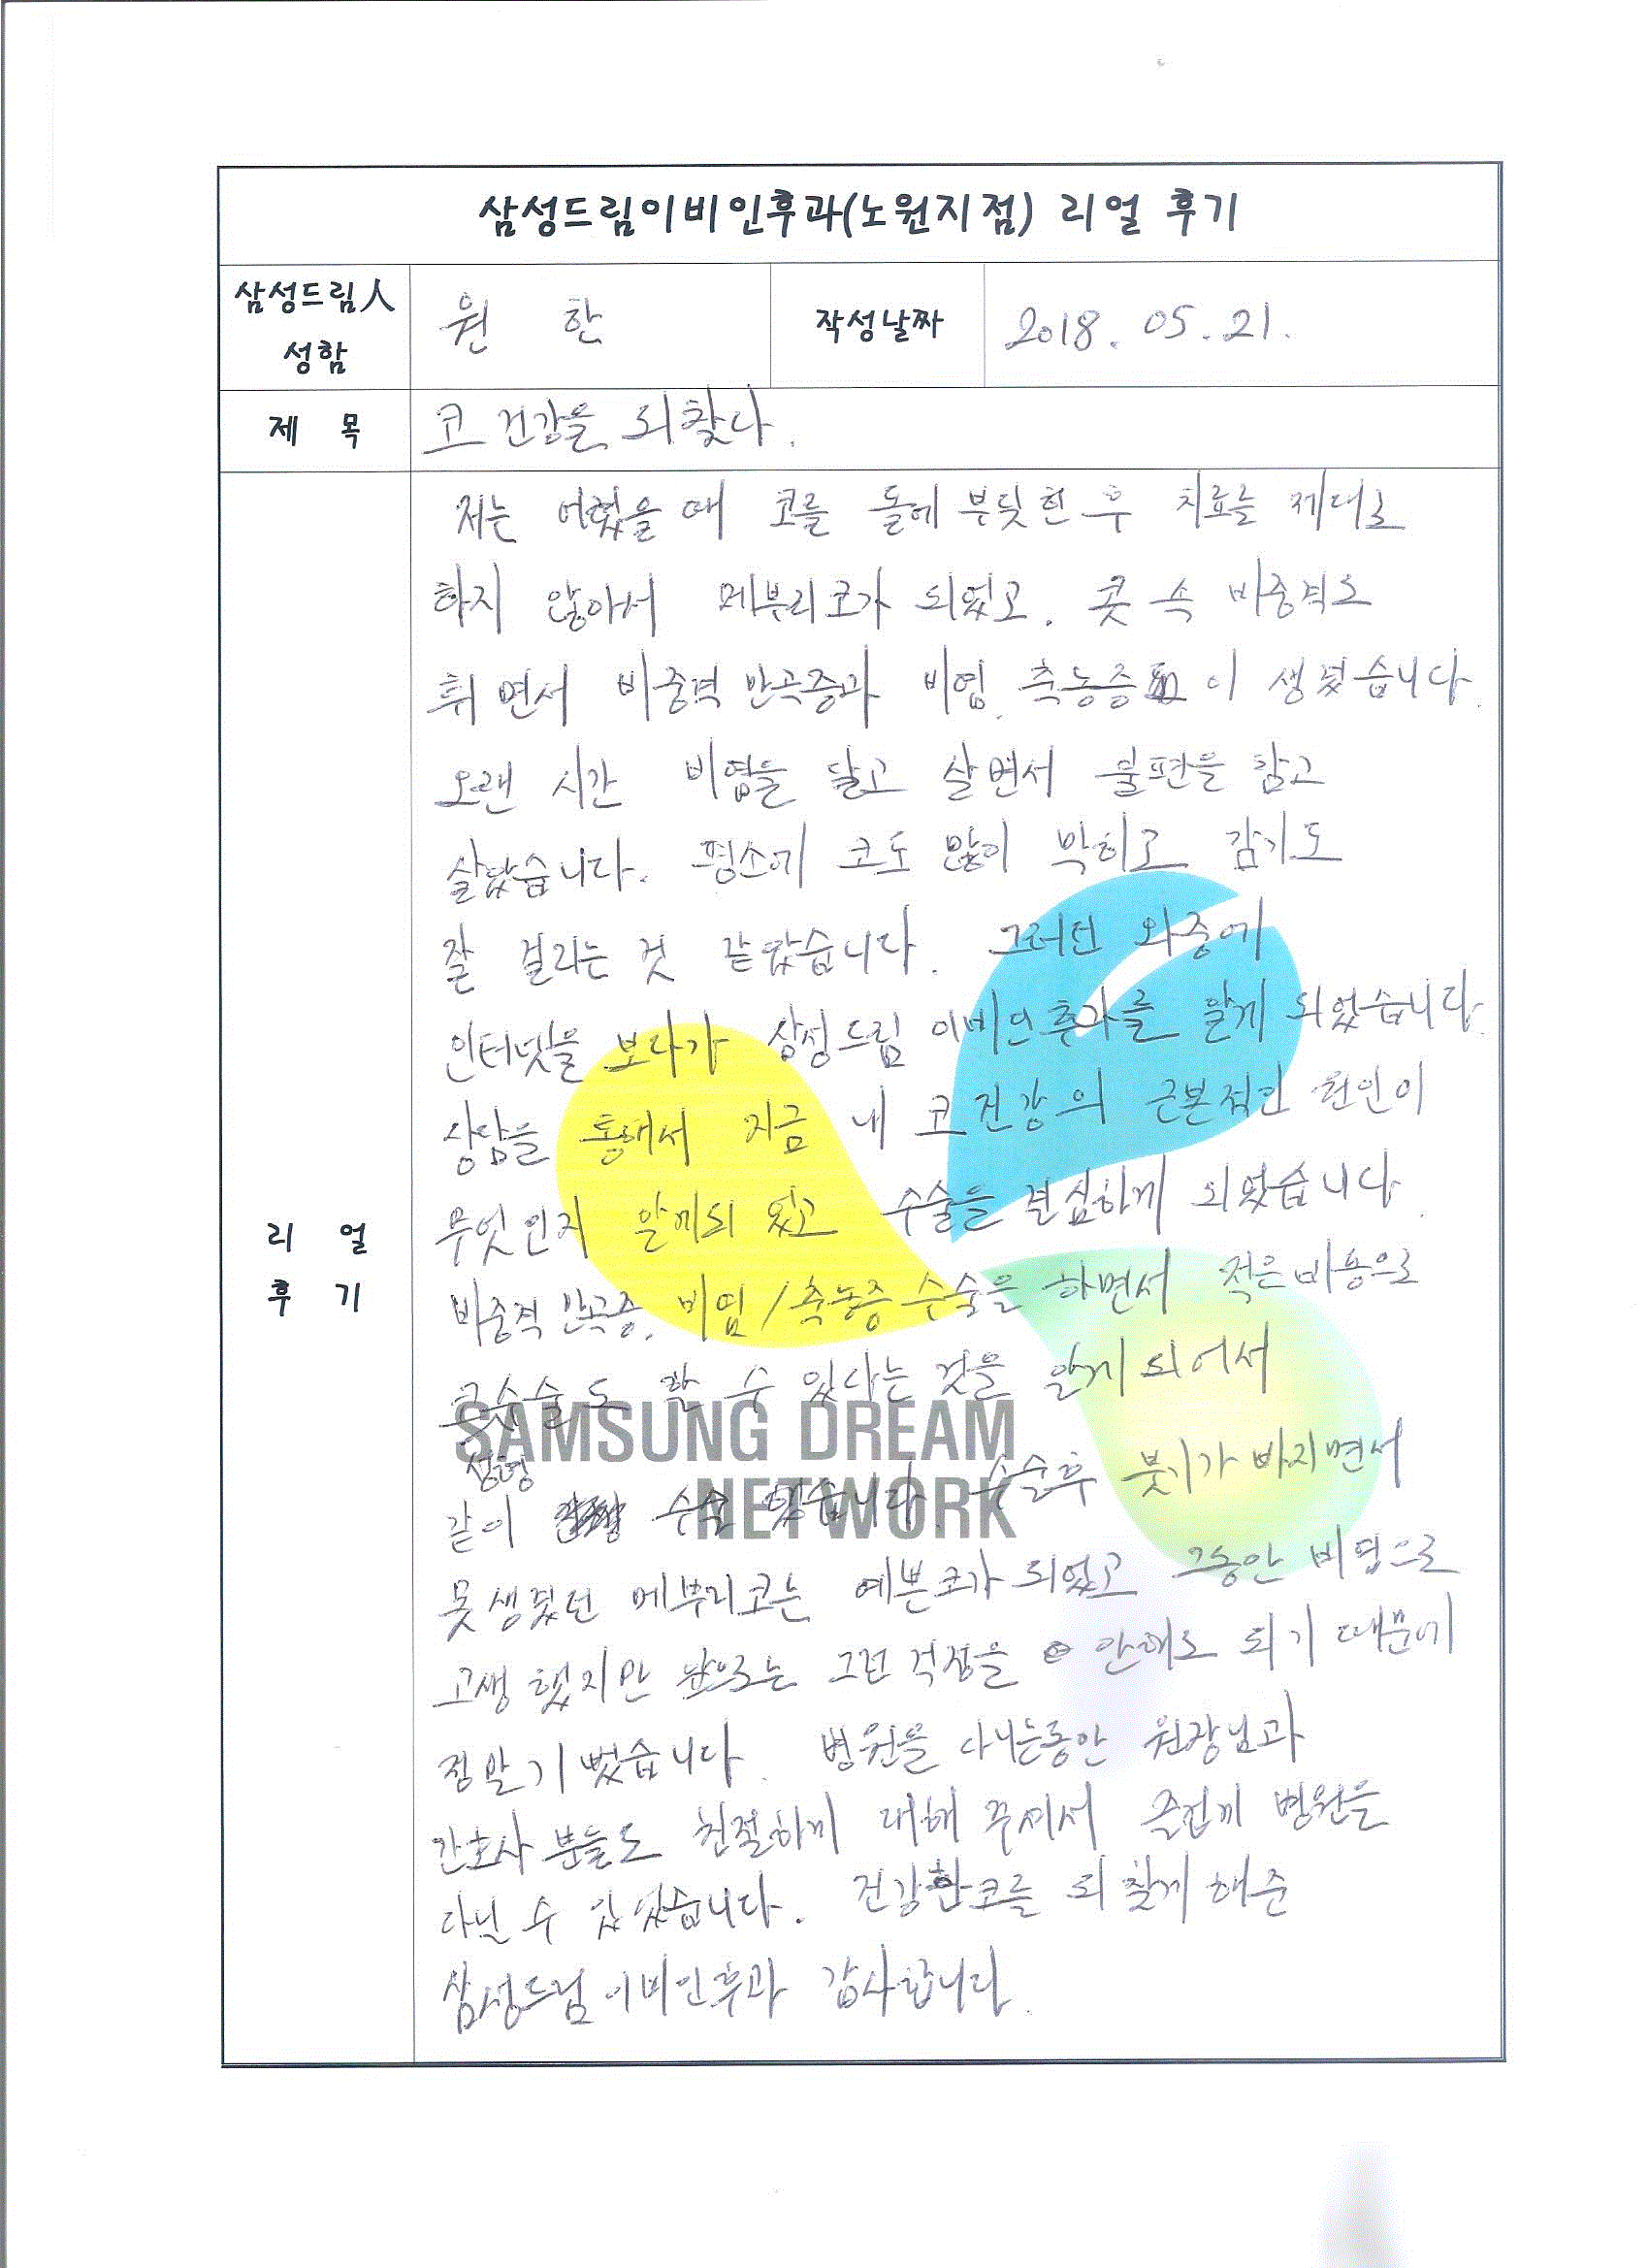 삼성드림이비인후과(노원지점) 리얼 후기
삼성드림人 성함
원 한
작성날짜
2018. 05. 21.
제 목
코 건강을 되찾다.
리 얼 후 기
저는 어렸을 때 코를 돌에 부딪힌 후 치료를 제대로
하지 않아서 메부리코가 되었고, 콧 속 비중격도
휘면서 비중격 만곡증과 비염, 축농증 이 생겼습니다.
오랜 시간 비염을 달고 살면서 불편을 참고
살았습니다. 평소에 코도 많이 막히고 감기도
잘 걸리는 것 같았습니다. 그러던 와중에
인터넷을 보다가 삼성드림 이비인후과를 알게 되었습니다.
상담을 통해서 지금 내 코 건강의 근본적인 원인이
무엇인지 알게되 었고 수술을 결심하게 되었습니다.
비중격 만곡증, 비염/축농증 수술을 하면서 적은비용으로
코수술도 할 수 있다는 것을 알게 되어서
성형
같이 수술 했습니다. 수술후 붓기가 빠지면서
못생겼던 메부리코는 예쁜코가 되었고 그동안 비염으로
고생 했지만 앞으로는 그런 걱정을 안해도 되기 때문에
정말 기뻤습니다. 병원을 다니는동안 원장님과
간호사 분들도 친절하게 대해 주셔서 즐겁게 병원을
다닐 수 있었습니다. 건강한코를 되찾게 해준
삼성드림 이비인후과 감사합니다.
SAMSUNG DREAM
NETWORK